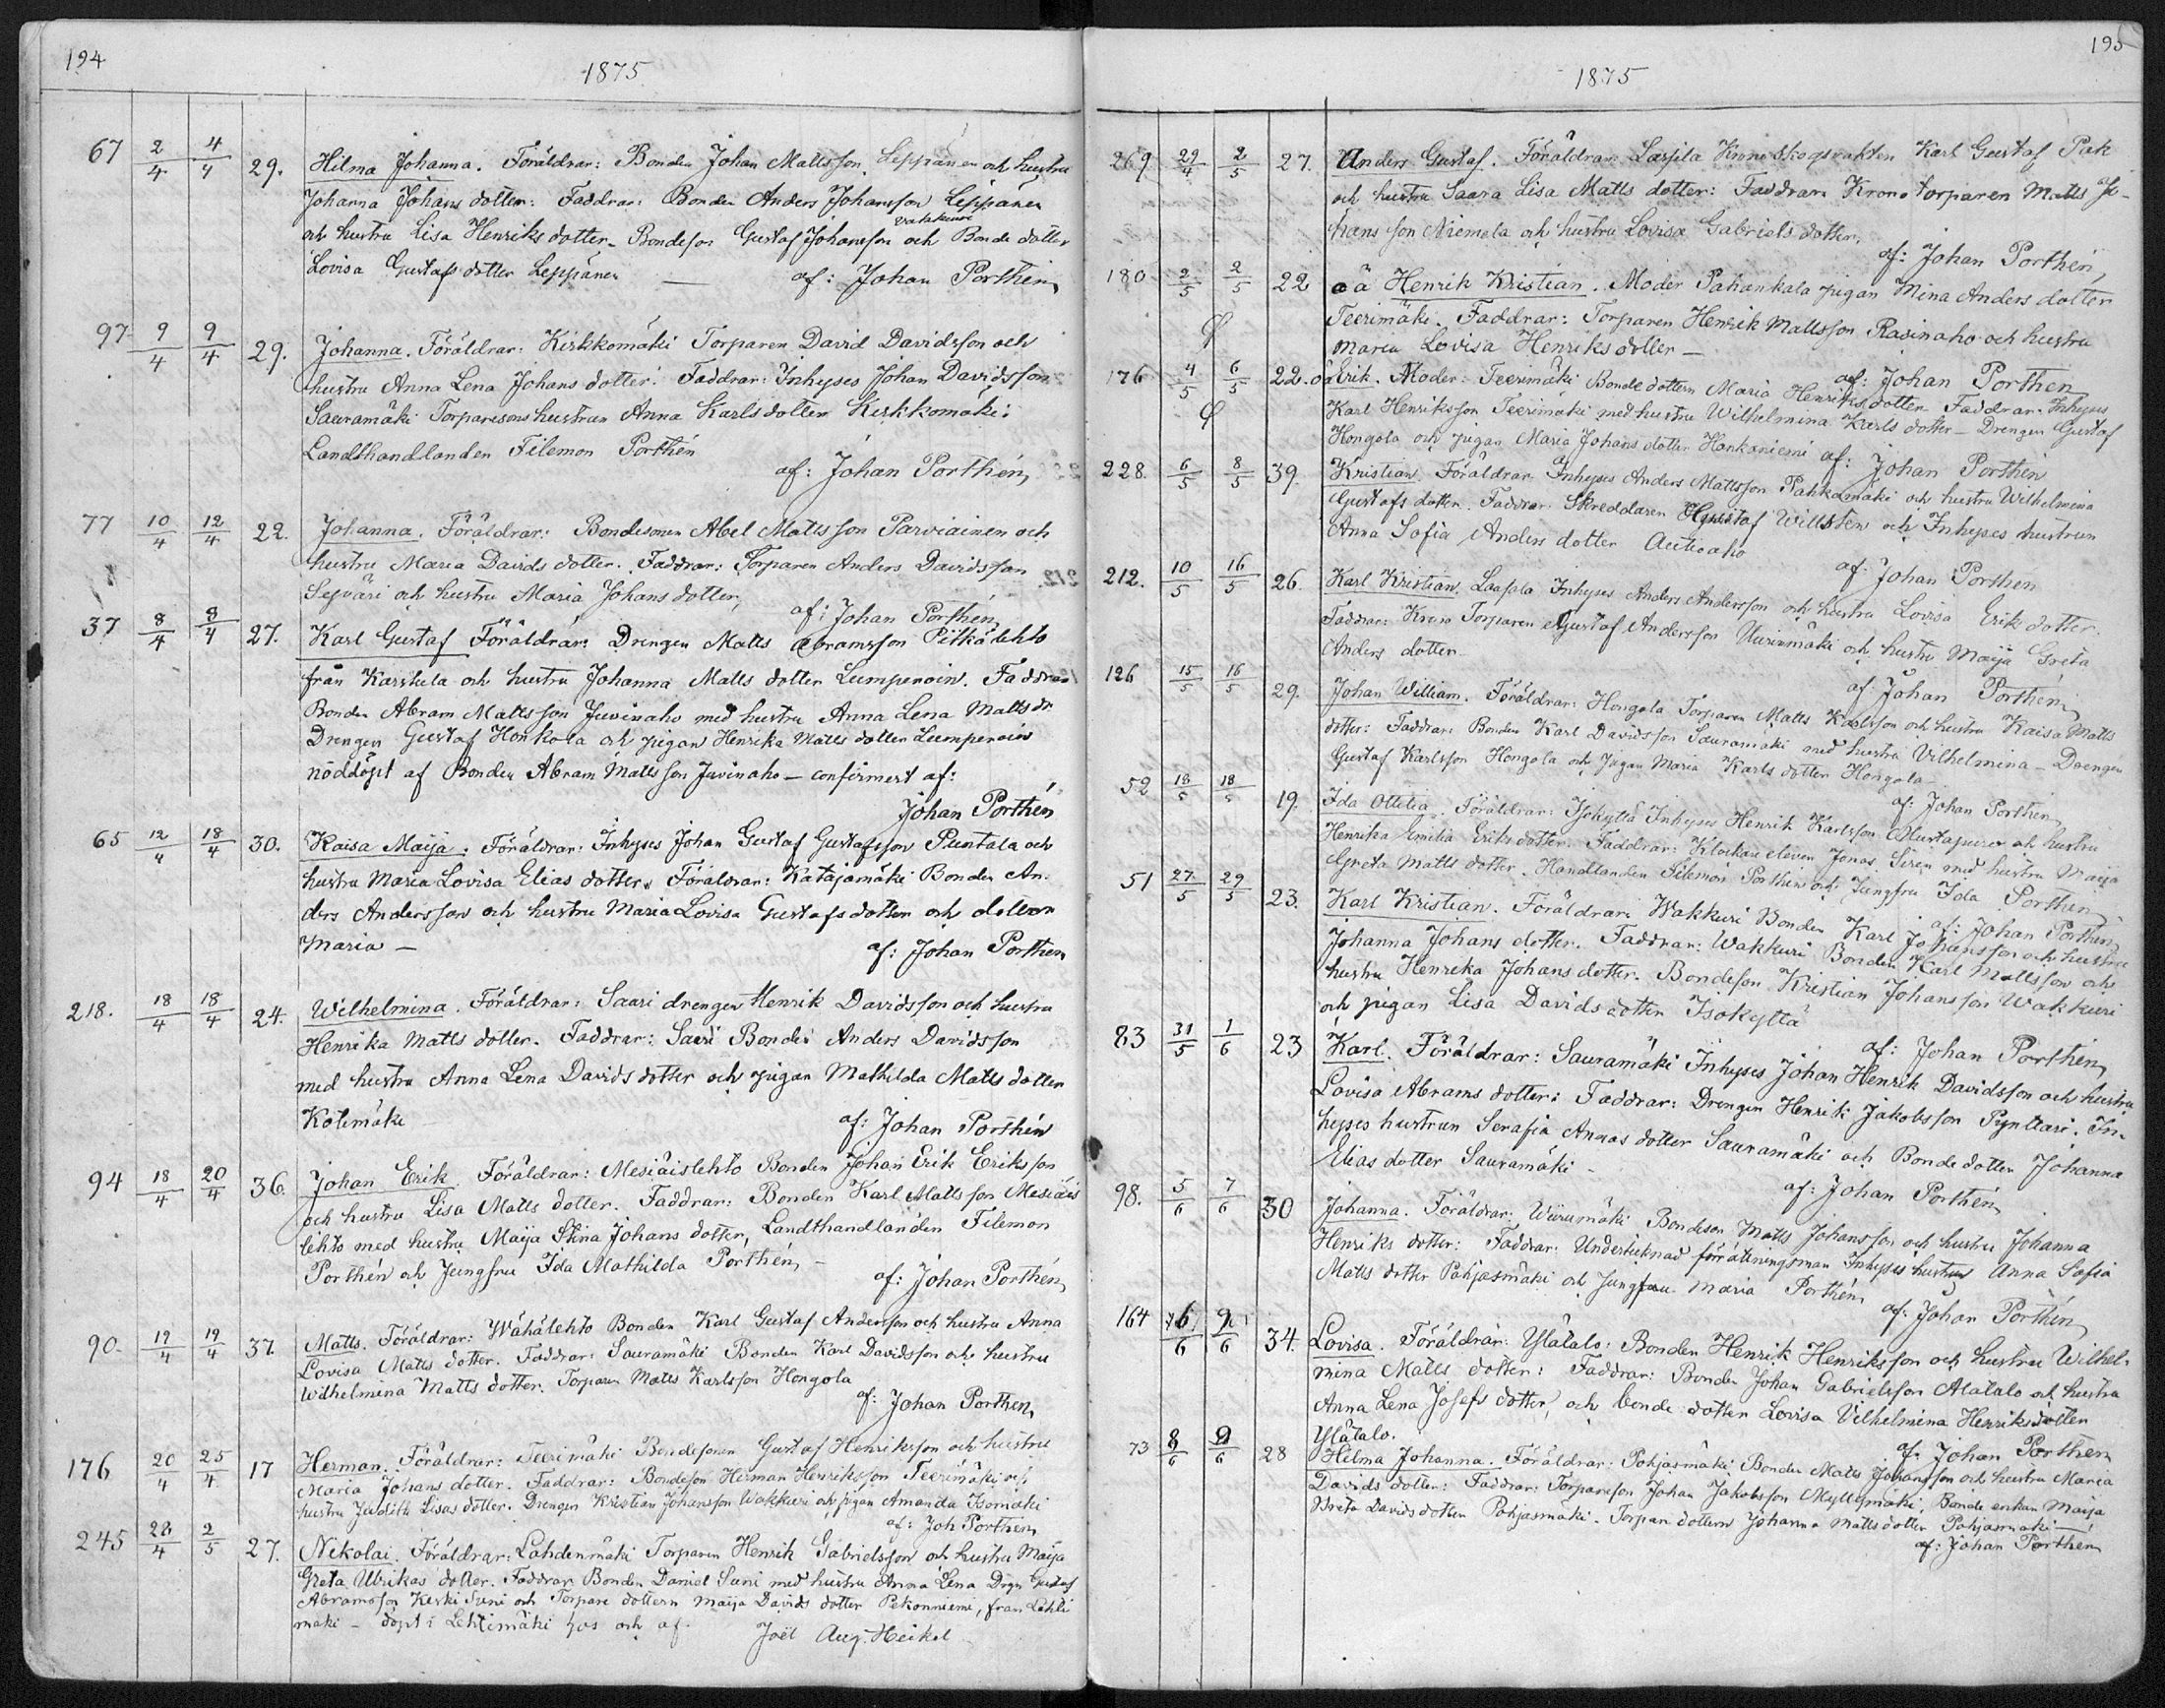 194
1875
67 2/4 4/4 29. Hilma Johanna. Föräldrar: Bonden Johan Mattsson Leppänen och hustru
Johanna Johans dotter: Faddrar: Bonden Anders Johansson Leppänen
och hustru Lisa Henriks dotter. Bondeson Gustaf Johansson Vakkuri och Bonde dotter
Lovisa Gustafs dotter Leppänen — af: Johan Porthén
97 9/4 9/4 29. Johanna. Föräldrar: Kirkkomäki Torparen David Davidsson och
hustru Anna Lena Johans dotter: Faddrar: Inhyses Johan Davidsson
Sauramäki Torparesons hustrun Anna Karls dotter Kirkkomäki:
Landthandlanden Filemon Porthén
af: Johan Porthén
77 10/4 12/4 22. Johanna. Föräldrar: Bondesonen Abel Matts son Parviainen och
hustru Maria Davids dotter. Faddrar: Torparen Anders Davidsson
och hustru Maria Johans dotter, af: Johan Porthén
37 8/4 8/4 27. Karl Gustaf Föräldrar: Drengen Matts Abramsson Pitkälehto
från Karstula och hustru Johanna Matts dotter Lumperoin. Faddrar
Bonden Abram Mattsson Juvinaho med hustru Anna Lena Matts dr
Drengen Gustaf Honkola och pigan Henrika Matts dotter Lumperoin
nöddöpt af Bonden Abram Matts son Juvinaho — confirmert af:
Johan Porthén
65 12/4 18/4 30. Kaisa Maija. Föräldrar: Inhyses Johan Gustaf Gustafsson Puntala och
hustru Maria Lovisa Elias dotter. Föräldrar: Katajamäki Bonden An-
ders Andersson och hustru Maria Lovisa Gustafs dotter och dottren
Maria — af: Johan Porthén
218. 18/4 18/4 24. Wilhelmina. Föräldrar: Saari drengen Henrik Davidsson och hustru
Henrika Matts dotter. Faddrar: Saari Bonden Anders Davidsson
med hustru Anna Lena Davids dotter och pigan Mathilda Matts dotter
Kotimäki af: Johan Porthén
94 18/4 20/4 36. Johan Erik. Föräldrar: Mesiäislehto Bonden Johan Erik Eriksson
och hustru Lisa Matts dotter. Faddrar: Bonden Karl Matts son Mesiäis
lehto med hustru Maija Stina Johans dotter, Landthandlanden Filemon
Porthén och Jungfru Ida Mathilda Porthén, — af: Johan Porthén
90. 19/4 19/4 37. Matts. Föräldrar: Wähälehto Bonden Karl Gustaf Andersson och hustru Anna
Lovisa Matts dotter. Faddrar: Sauramäki Bonden Karl Davidsson och hustru
Wilhelmina Matts dotter. Torparen Matts Karlsson Hongola
af: Johan Porthén
176 20/4 25/4 17 Herman. Föräldrar: Teerimäki Bondesonen Gustaf Henriksson och hustru
Maria Johans dotter. Faddrar: Bondeson Herman Henriksson Teerimäki och
hustru Judith Lisas dotter. Drengen Kristian Johansson Wakkuri och pigan Amanda Isomäki
af: Joh Porthén
245 28/4 2/5 27. Nikolai. Föräldrar: Lahdenmäki Torparen Henrik Gabrielsson och hustru Maija
Greta Ulrikas dotter. Faddrar Bonden Daniel Suni med hustru Anna Lena Drgn Gustaf
Abramsson Keski Suni och Torpare dottern Maija Davids dotter Pekonniemi, från Lehti
mäki — döpt i Lehtimäki hos och af. Joël Aug. Heikel
195
1875
269 29/4 2/5 27. Anders Gustaf. Föräldrar: Lassila Kronoskogvakten Karl Gustaf Pak
och hustru Saara Lisa Matts dotter: Faddrar: Krono torparen Matts Jo-
hans son Niemela och hustru Lovisa Gabriels dotter,
af: Johan Porthén
180 2/5 2/5 22 o ä Henrik Kristian. Moder Pahankala pigan Mina Anders dotter
Teerimäki. Faddrar: Torparen Henrik Mattsson Rasinaho och hustru
Maria Lovisa Henriks dotter —
af: Johan Porthén
176 4/5 6/5 22. oä Erik. Moder: Teerimäki Bonde dottern Maria Henriks dotter Faddrar: Inhyses
Karl Henriksson Teerimäki med hustru Wilhelmina Karls dotter — Drengen Gustaf
Hongola och pigan Maria Johans dotter Honkaniemi af: Johan Porthén
228. 6/5 8/5 39. Kristian. Föräldrar: Inhyses Anders Mattsson Pahkamäki och hustru Wilhelmina
Gustafs dotter. Faddrar: Skreddaren Gustaf Willsten och Inhyses hustrun
Anna Sofia Anders dotter Autioaho
af: Johan Porthén
212. 10/5 16/5 26. Karl Kristian. Laasala Inhyses Anders Andersson och hustru Lovisa Erik dotter.
Faddrar: Krono Torparen Gustaf Andersson Uurimäki och hustru Maija Greta
Anders dotter
af: Johan Porthén
126 15/5 16/5 29. Johan William. Föräldrar: Hongola Torparen Matts Karlsson och hustru Kaisa Matts
dotter: Faddrar: Bonden Karl Davidsson Sauramäki med hustru Vilhelmina — Drengen
Gustaf Karlsson Hongola och pigan Maria Karls dotter Hongola
af: Johan Porthén
52 18/5 18/5 19. Ida Ottilia. Föräldrar: Isokyttä Inhyses Henrik Karlsson Mustapuro och hustru
Henrika Emilia Eriks dotter. Faddrar: Klockare eleven Jonas Siren med hustru Maija
Greta Matts dotter. Handlanden Filemon Porthén och Jungfru Ida Porthén
af: Johan Porthén
51 27/5 29/5 23. Karl Kristian. Föräldrar: Wakkuri Bonden Karl Johansson och hustru
Johanna Johans dotter. Faddrar: Wakkuri Bonden Karl Mattsson och
hustru Henrika Johans dotter. Bondeson Kristian Johansson Wakkuri
och pigan Lisa Davids dotter Isokyttä
af: Johan Porthén
83 31/5 1/6 23 Karl. Föräldrar: Sauramäki Inhyses Johan Henrik Davidsson och hustru
Lovisa Abrams dotter: Faddrar: Drengen Henrik Jakobsson Pynttari. In-
hyses hustrun Serafia Annas dotter Sauramäki och Bonde dotter Johanna
Elias dotter Sauramäki —
af: Johan Porthén
98. 5/6 7/6 30 Johanna. Föräldrar: Wiirumäki Bondeson Matts Johansson och hustru Johanna
Henriks dotter: Faddrar: Undertecknad förrättningsman Inhyses hustrun Anna Sofia
Matts dotter Pohjasmäki och Jungfru Maria Porthén
af: Johan Porthén
164 6/6 9/6 34. Lovisa. Föräldrar: Ylätalo: Bonden Henrik Henriksson och hustru Wilhel-
mina Matts dotter: Faddrar: Bonden Johan Gabrielsson Alatalo och hustru
Anna Lena Josefs dotter, och bonde dotter Lovisa Vilhelmina Henriks dotter
Ylätalo.
af: Johan Porthén
73 8/6 9/6 28 Hilma Johanna. Föräldrar: Pohjasmäki Bonden Matts Johansson och hustru Maria
Davids dotter: Faddrar: Torpareson Johan Jakobsson Myllymäki, Bonde enkan Maija
Greta Davids dotter Pohjasmäki. Torpare dottern Johanna Matts dotter Pohjasmäki —
af: Johan Porthén